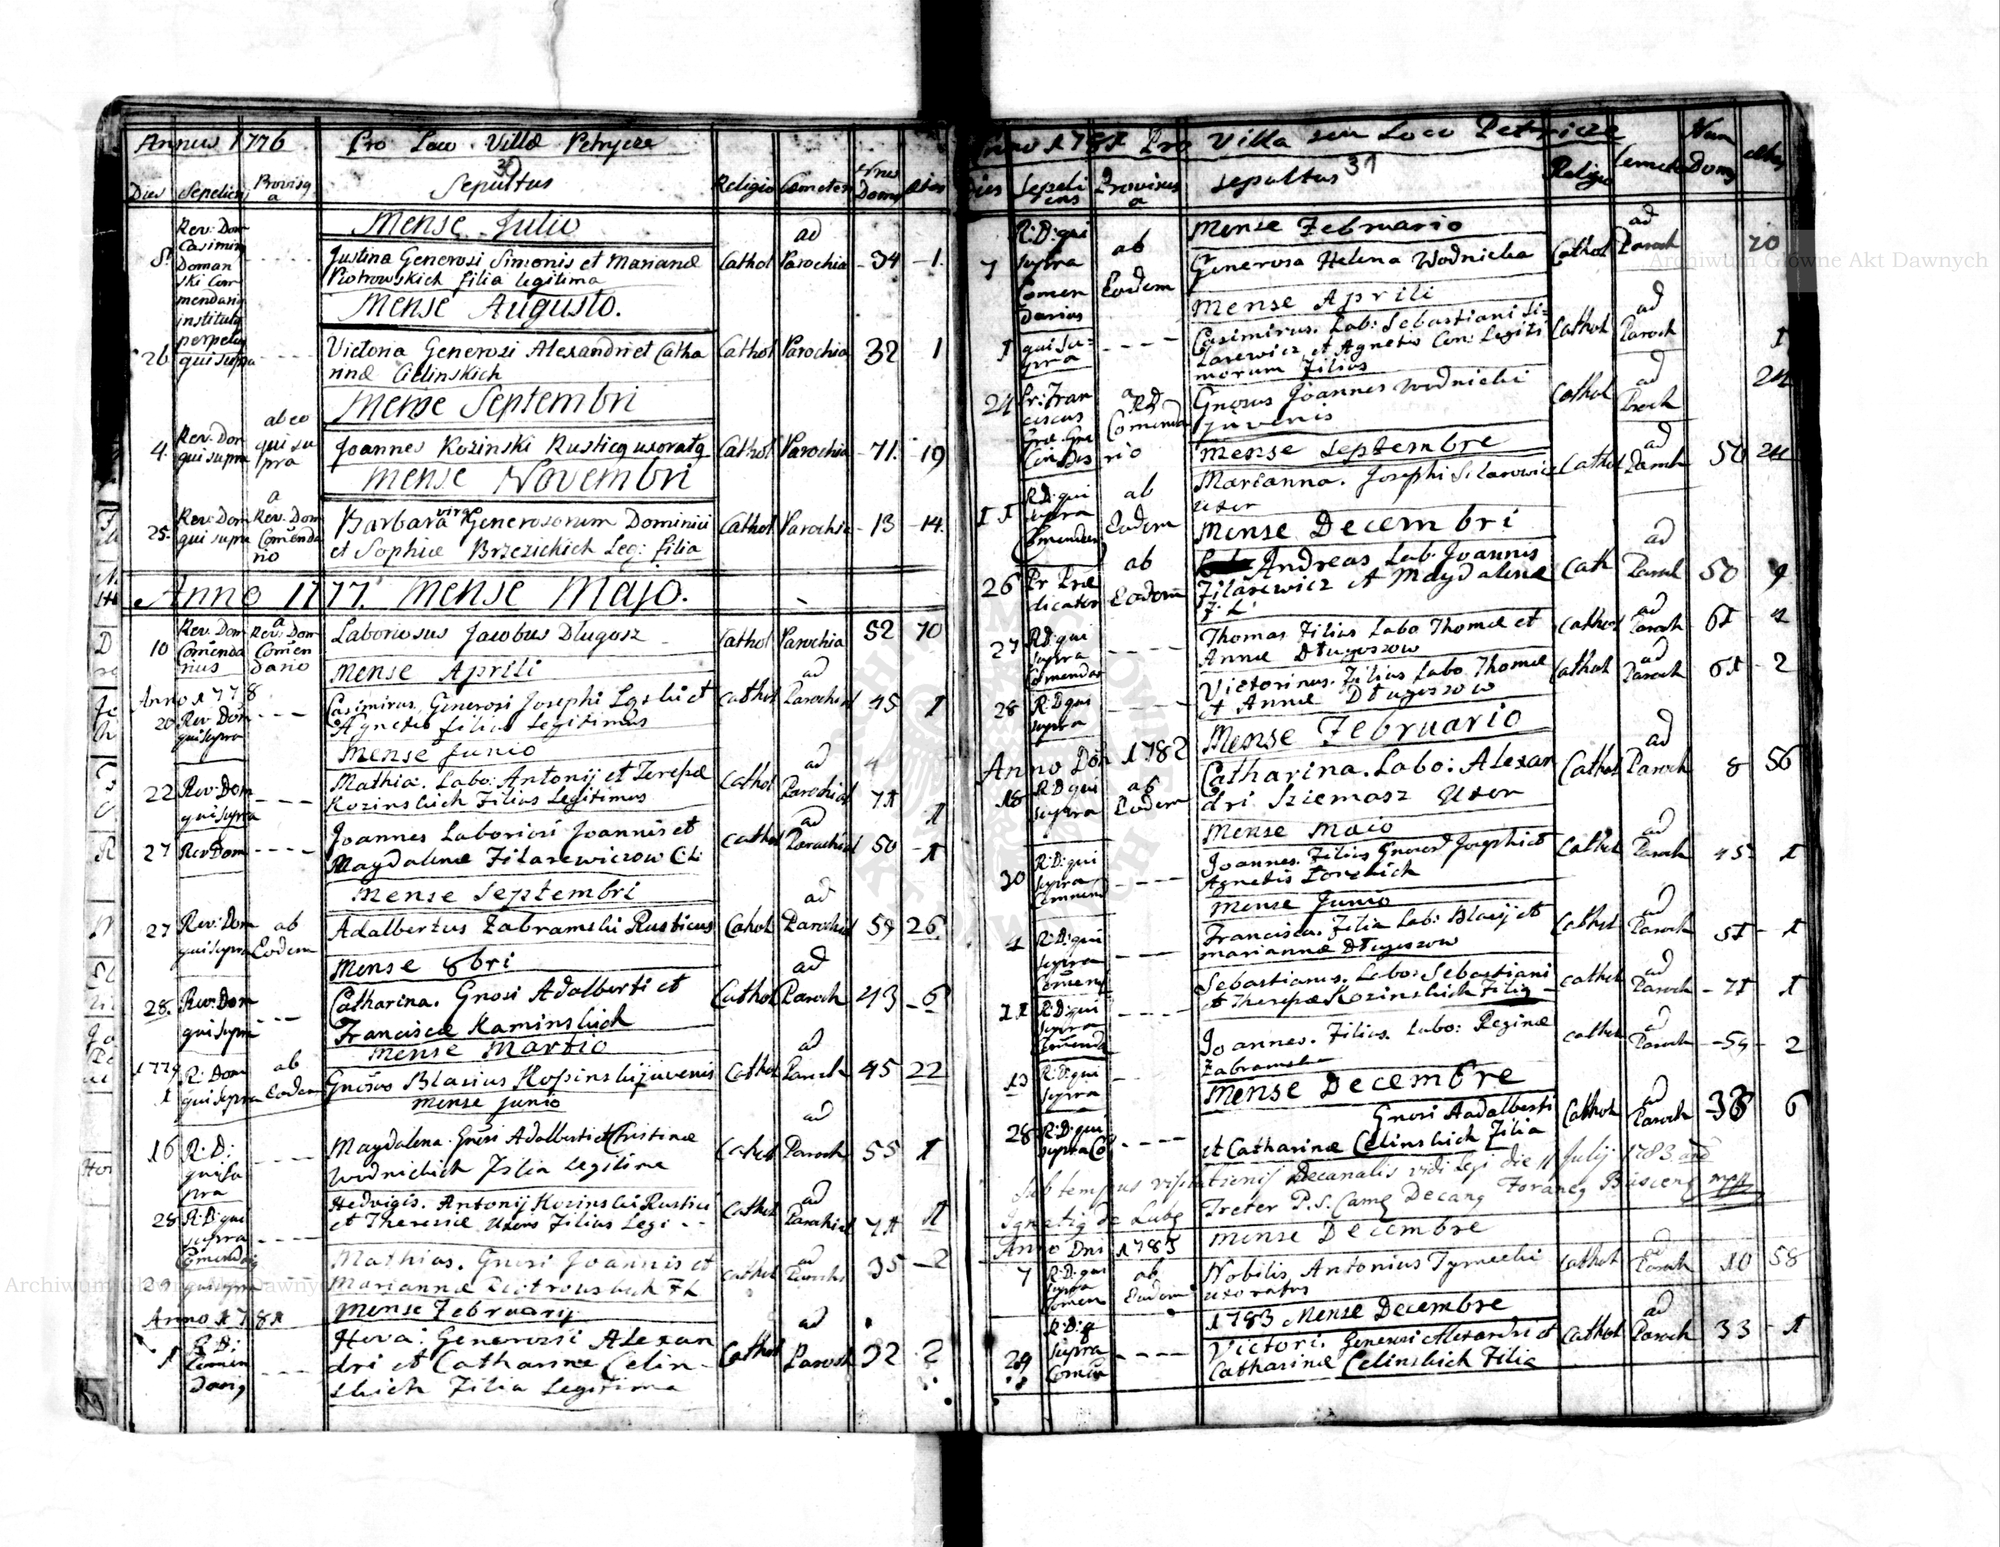 Annus 1776 Pro Loco Villæ Petrycze
30
Dies Sepeliens Provisq a Sepultus Religio Cœmeter Nrus Domq Ætas
Mense Julio
8. Rev: Dom Casimirq Doman ski Com mendariq institutq perpetuq - - - - Justina Generosi Simonis et Marianæ Cathol ad Parochia - 34 - 1.
Piotrowskich filia legitima
Mense Augusto.
26 qui supra - - - - Victoria Generosi Alexandri et Catha Cathol Parochia 32 1
rinæ Cielinskich
Mense Septembri
4. Rev: Dom qui supra ab eo qui su pra Joannes Kozinski Rusticq uxoratq Cathol Parochia - 71. - 19
Mense Novembri
25. Rev: Dom qui supra a Rev: Dom Comenda rio Barbara virgo Generosorum Dominici Cathol Parochia - 13 - 14.
et Sophiæ Brzezickich Leg: filia
Anno 1777. Mense Majo.
10 Rev: Dom Comenda rius a Rev: Dom Comen dario Laboriosus Jacobus Długosz Cathol Parochia 52 70
Mense Aprili
Anno 1778
20 Rev: Dom qui supra - - - Casimirus. Generosi Josephi et Cathol ad Parochial 45 1
Agnetis filius Legitimus
Mense Junio
22 Rev: Dom qui supra - - - - Mathia. Labo: Antonij et Teresæ Cathol ad Parochial 71 1
Kozinskich Filius Legitimus
27 Rev Dom - - - - Joannes Laboriosi Joannis et Cathol ad Parochial 50 - 1
Magdalenæ Zilarewiczow
Mense Septembri
27 Rev: Dom qui supra ab Eodem Adalbertus Zabramski Rusticus Cathol ad Parochial 59 26
Mense 8bri
28. Rev: Dom qui supra - - - Catharina. Gnosi Adalberti et Cathol ad Paroch 43 - 6
Franciscæ Kaminskich
Mense Martio
1779 1 R: Dom qui supra ab Eodem Gnosus Blasius juvenis Cathol ad Paroch 45 22
Mense Junio
16 R: D: qui su pra - - - - Magdalena. Gnosi Adalberti et Cristinæ Cathol ad Paroch 55 1
Wodnickich Filia Legitima
28 R: D: qui supra Comendariq - - - - Hedvigis. Antonij Kozinski Rustici Cathol ad Parochial 71 1
et Theresiæ Uxoris Filius Legi - -
29 qui supra - - - Mathias. Gnosi Joannis et Cathol ad Paroch 35 - 2
Mariannæ Piotrowskich
Anno 1781 Mense Februarij
1 R: D: Comen dariq - - - - Heva. Generosi Alexan Cathol ad Paroch 32 2
dri et Catharinæ Celin-
skich Filia Legitima
Anno 1781 Pro Villa seu Loco Petricze Num
Dies Sepeli ens Provisus a Sepultus 31 Religio Cemete Domq Ætas
Mense Februario
7 R: D: qui supra Comen darius ab Eodem Generosa Helena Wodnicka Cathol ad Paroch 70
Mense Aprili
1 qui su- pra - - - - Casimirus. Lab: Sebastiani Zi- Cathol ad Paroch 1
larewicz et Agnetis Con: Legiti
morum Filius
24 Pr: Fran ciscus a RD Comenda rio Gnosus Joannes Wodnicki Cathol ad Paroch 24
juvenis
Mense Septembre
11 R: D: qui supra Comendar ab Eodem Marianna. Josephi Zilarowicz Cathol ad Paroch 50 24
uxor
Mense Decembri
26 Pr Præ dicator ab Eodem Andreas Lab: Joannis Cath ad Paroch 50 9
Zilarewicz et Magdalenæ
F. L.
27 R: D: qui supra Comendar - - - - Thomas Filius Labo Thomæ et Cathol ad Paroch 61 - 4
Annæ Długoszow
28 R: D: qui supra - - - - Victorinus. Filius Labo Thomæ Cathol ad Paroch 61 - 2
et Annæ Długoszow
Anno Dni 1782 Mense Februario
18 R: D: qui supra ab Eodem Catharina. Labo: Alexan Cathol ad Paroch 8 56
dri Sziemasz Uxor
Mense Maio
30 R: D: qui supra Comend - - - - Joannes. Filius Gnosor Josephi et Cathol ad Paroch 45 1
Agnetis
Mense Junio
1 R: D: qui supra Comend - - - - Francisca. Filia Lab: Blasij et Cathol ad Paroch 51 - 1
Mariannæ Długoszow
11 R: D: qui supra Comenda - - - - Sebastianus. Labo: Sebastiani Cathol ad Paroch - 71 1
et Theresæ Kozinskich Filiq
13 R: D: qui supra - Joannes. Filius. Labo: Reginæ Cathol ad Paroch - 59 - 2
Zabramska
Mense Decembre
28 R: D: qui supra Co - - - - Gnosi Aadalberti Cathol ad Paroch - 38 6
et Catharinæ Celinskich Filia
Sub tempus visitationis Decanalis vidi legi die 11 Julij 1783 and
Ignatiq de Lube Treter P. S. Decanq Foraneq Buscensq mpp
Anno Dni 1783 Mense Decembre
7 R: D: qui supra Comen ab Eodem Nobilis Antonius Tymecki Cathol ad Paroch 10 58
uxoratus
1783 Mense Decembre
29 R: D: q supra Comen - - - - Victori. Generosi Alexandri et Cathol ad Paroch 33 - 1
Catharinæ Celinskich Filia
Archiwum Główne Akt Dawnych
Archiwum Główne Akt Dawnych